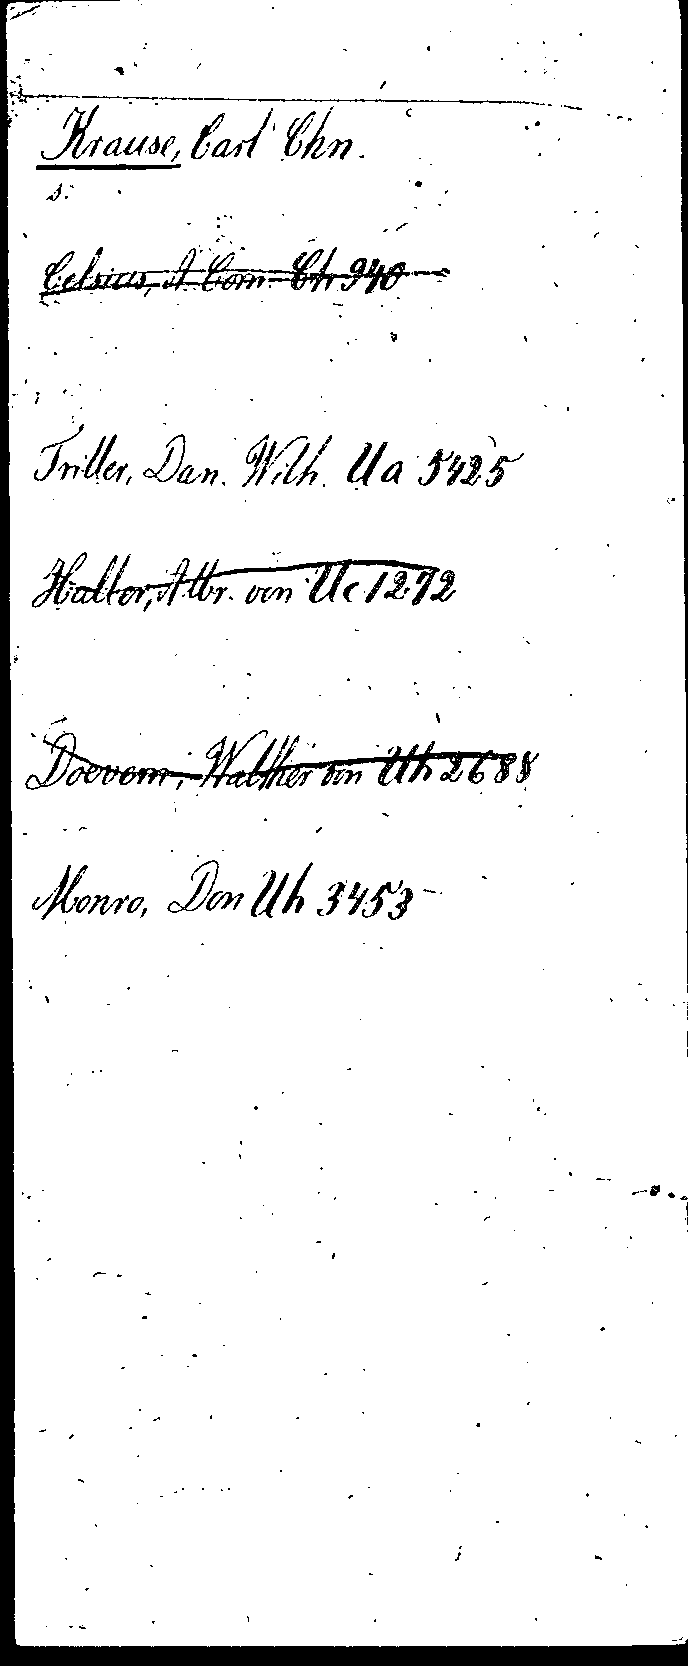 Krause, Carl Chn.
s.
Celsius, A Corn. Ch 940
Triller, Dan. Wilh. Ua 5425
Haller, Albr. von Uc 1272
Doevern, Walther von Uh 2688
Monro, Don Uh 3453